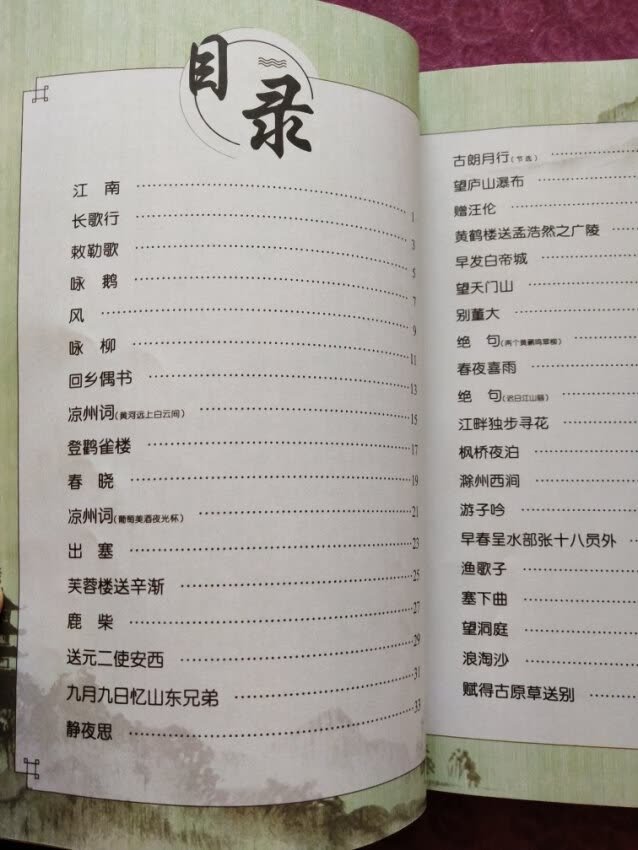 目录
江 南 ········ 1
长歌行 ········ 3
敕勒歌 ········ 5
咏 鹅 ········ 7
风 ········ 9
咏 柳 ········ 11
回乡偶书 ········ 13
凉州词(黄河远上白云间) ········ 15
登鹳雀楼 ········ 17
春 晓 ········ 19
凉州词(葡萄美酒夜光杯) ········ 21
出 塞 ········ 23
芙蓉楼送辛渐 ········ 25
鹿 柴 ········ 27
送元二使安西 ········ 29
九月九日忆山东兄弟 ········ 31
静夜思 ········ 33
古朗月行(节选) ········
望庐山瀑布 ········
赠汪伦 ········
黄鹤楼送孟浩然之广陵 ········
早发白帝城 ········
望天门山 ········
别董大 ········
绝 句(两个黄鹂鸣翠柳) ········
春夜喜雨 ········
绝 句(迟日江山丽) ········
江畔独步寻花 ········
枫桥夜泊 ········
滁州西涧 ········
游子吟 ········
早春呈水部张十八员外 ········
渔歌子 ········
塞下曲 ········
望洞庭 ········
浪淘沙 ········
赋得古原草送别 ········